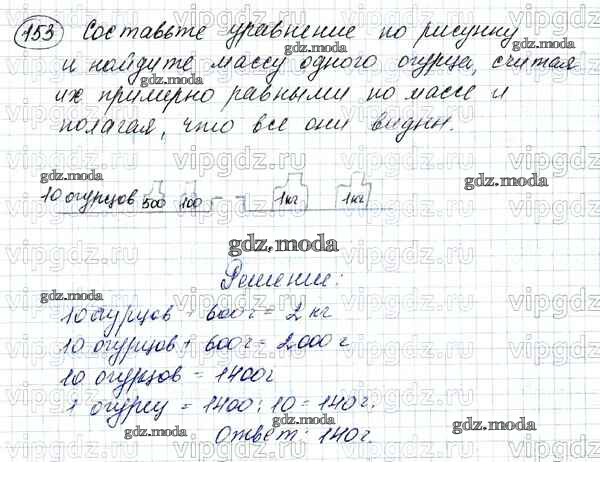 153 Составьте уравнение по рисунку
и найдите массу одного огурца, считая
их примерно равными по массе и
полагая, что все они видны.
10 огурцов 500 100г 1кг 1кг
gdz.moda
Решение:
10 огурцов + 600г = 2 кг
10 огурцов + 600г = 2000 г
10 огурцов = 1400г
1 огурец = 1400 : 10 = 140г.
Ответ: 140г.